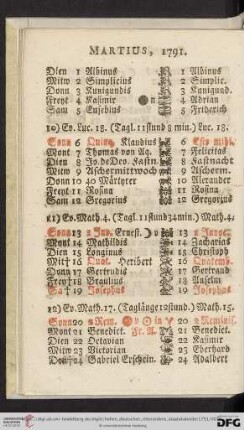 MARTIUS, 1791.
Dien 1 Albinus 1 Albinus
Mitw 2 Simplicius 2 Simplic.
Donn 3 Kunigundis 3 Kunigund.
Freyt 4 Kasimir 4 Adrian
Sam 5 Eusebius 5 Friderich
10) Ev. Luc. 18. (Tagl. 11 stund 8 min.) Luc. 18.
Sonn 6 Quinq. Claudius 6
Mont 7 Thomas von Aq. 7 Felicitas
Dien 8 Jo. de Deo. Fastn. 8 Fastnacht
Mitw 9 Aschermittwoch 9 Ascherm.
Donn 10 40 Märtyrer 10 Alexander
Freyt 11 Rosina 11 Rosina
Sam 12 Gregorius 12 Gregorius
11) Ev. Math. 4. (Tagl. 11 stund 34 min.) Math. 4.
Sonn 13 Ernest. 13
Mont 14 Mathildis 14 Zacharias
Dien 15 Longinus 15 Christoph
Mit 16 Quat. Heribert 16 Quatemb.
Donn 17 Gertrudis 17 Gertrand
Freyt 18 Braulius 18 Anselm
Sa 19 Josephus 19 Josephus
12) Ev. Math. 17. (Taglänge 12 stund.) Math. 15.
Sonn 20 Rem. 20 Reminis.
Mont 21 Benedict. 21 Benedict.
Dien 22 Octavian 22 Kasimir
Mitw 23 Victorian 23 Eberhard
Donn 24 Gabriel Erschein. 24 Adelbert
DFG